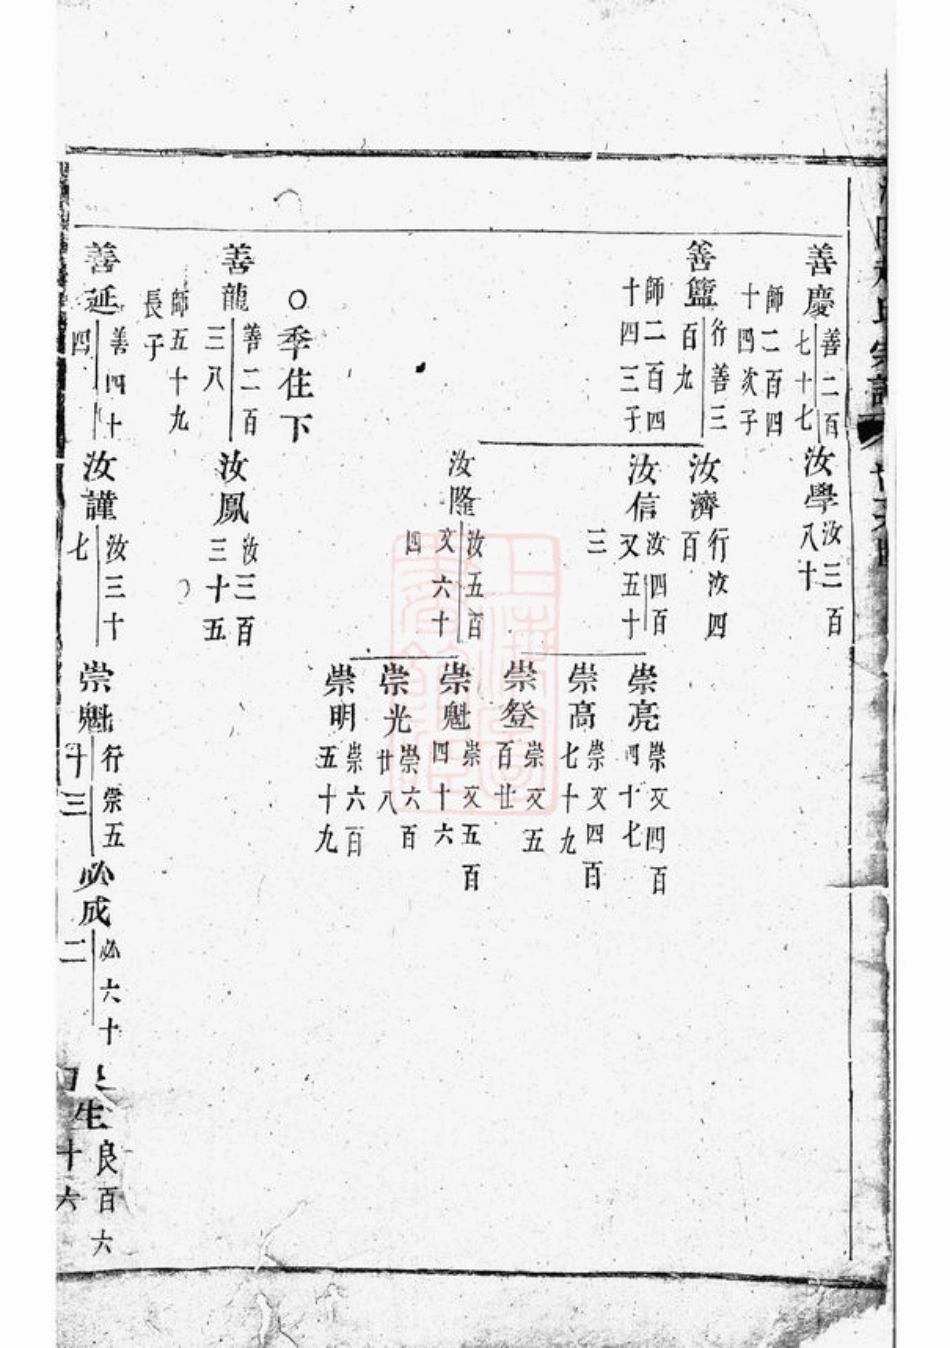 氏宗譜
善慶
善二百
七十七
師二百四
十四次子
汝學
汝三百
八十
善籃
行善三
百九
師二百四
十四三子
汝濟
行汝四
百
汝信
汝四百
又五十
三
崇亮
崇文四百
四十七
崇高
崇文四百
七十九
崇登
崇文五
百廿
汝隆
汝五百
文六十
四
崇魁
崇文五百
四十六
崇光
崇六百
廿八
崇明
崇六百
五十九
○季住下
善龍
善二百
三八
師五十九
長子
汝鳳
汝三百
三十五
善延
善四十
四
汝謹
汝三十
七
崇魁
行崇五
十三
必成
必六十
二
生
良百六
十六